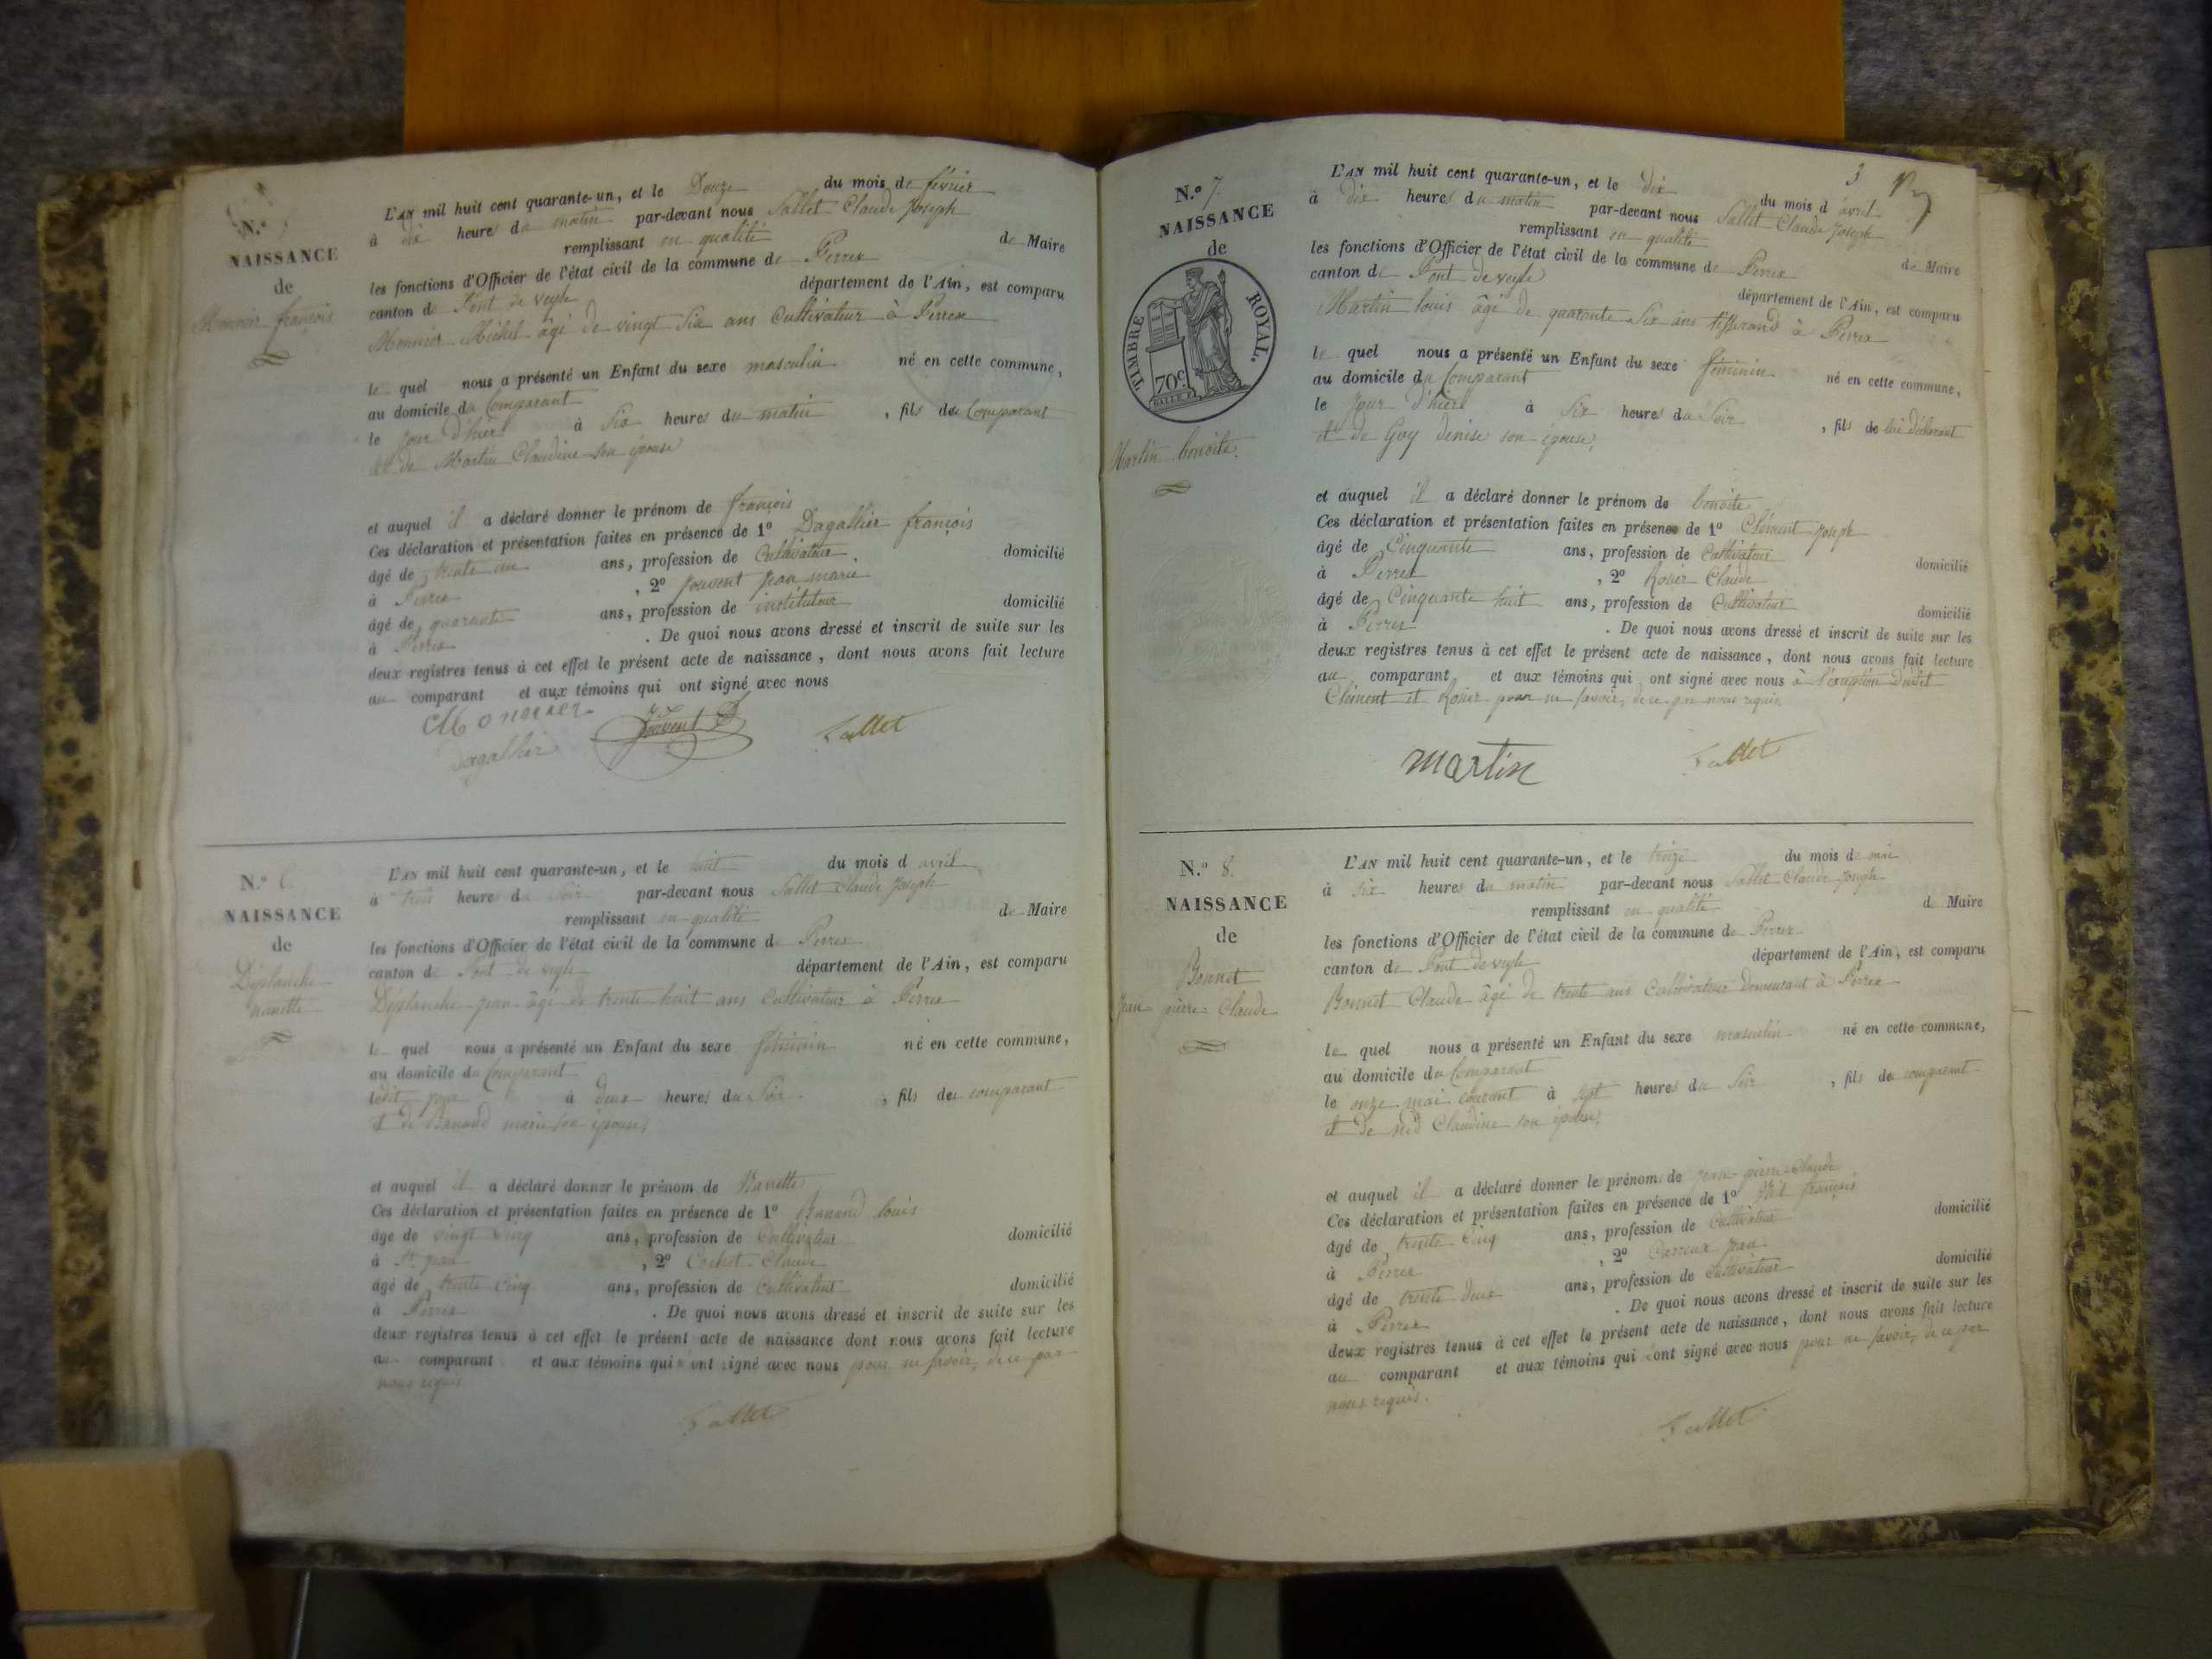 N.º
NAISSANCE
de
Monnier françois
L'AN mil huit cent quarante-un, et le Douze du mois de février
à dix heures du matin par-devant nous Sallet Claude Joseph
remplissant en qualité de Maire
les fonctions d'Officier de l'état civil de la commune de Perrex
canton de Pont de veyle département de l'Ain, est comparu
Monnier Michel âgé de vingt Six ans Cultivateur à Perrex
le quel nous a présenté un Enfant du sexe masculin né en cette commune,
au domicile du Comparant
le jour d'hier à Six heures du matin, fils du Comparant
et de Martin Claudine son épouse
et auquel il a déclaré donner le prénom de françois
Ces déclaration et présentation faites en présence de 1º Dagallier françois
âgé de trente un ans, profession de Cultivateur domicilié
à Perrex, 2º Jouvent Jean marie
âgé de quarante ans, profession de instituteur domicilié
à Perrex. De quoi nous avons dressé et inscrit de suite sur les
deux registres tenus à cet effet le présent acte de naissance, dont nous avons fait lecture
au comparant et aux témoins qui ont signé avec nous
Monnier
Dagallier Jouvent Sallet
N.º 6
NAISSANCE
de
Déplanche
nanette
L'AN mil huit cent quarante-un, et le huit du mois d avril
à trois heures du Soir par-devant nous Sallet Claude Joseph
remplissant en qualité de Maire
les fonctions d'Officier de l'état civil de la commune de Perrex
canton de Pont de veyle département de l'Ain, est comparu
Déplanche jean âgé de trente huit ans Cultivateur à Perrex
le quel nous a présenté un Enfant du sexe féminin né en cette commune,
au domicile du Comparant
ledit jour à deux heures du Soir, fils du comparant
et de marie son épouse,
et auquel il a déclaré donner le prénom de Nanette
Ces déclaration et présentation faites en présence de 1º louis
âgé de vingt Cinq ans, profession de Cultivateur domicilié
à St. jean, 2º Cochet Claude
âgé de trente Cinq ans, profession de Cultivateur domicilié
à Perrex. De quoi nous avons dressé et inscrit de suite sur les
deux registres tenus à cet effet le présent acte de naissance dont nous avons fait lecture
au comparant et aux témoins qui n'ont signé avec nous pour ne savoir, de ce par
nous requis
Sallet
3
N.º 7.
NAISSANCE
de
TIMBRE ROYAL.
70c.
Martin benoite.
L'AN mil huit cent quarante-un, et le dix du mois d avril
à dix heures du matin par-devant nous Sallet Claude Joseph
remplissant en qualité de Maire
les fonctions d'Officier de l'état civil de la commune de Perrex
canton de Pont de veyle département de l'Ain, est comparu
Martin louis âgé de quarante Six ans tisserand à Perrex
le quel nous a présenté un Enfant du sexe féminin né en cette commune,
au domicile du Comparant
le jour d'hier à Six heures du Soir, fils de lui déclarant
et de Guy denise son épouse,
et auquel il a déclaré donner le prénom de benoite
Ces déclaration et présentation faites en présence de 1º Clément Joseph
âgé de Cinquante ans, profession de Cultivateur domicilié
à Perrex, 2º Rosier Claude
âgé de Cinquante huit ans, profession de Cultivateur domicilié
à Perrex. De quoi nous avons dressé et inscrit de suite sur les
deux registres tenus à cet effet le présent acte de naissance, dont nous avons fait lecture
au comparant et aux témoins qui ont signé avec nous à l'exception dudit
Clément et Rosier pour ne savoir, de ce par nous requis
martin Sallet
N.º 8.
NAISSANCE
de
Bonnet
Jean pierre Claude
L'AN mil huit cent quarante-un, et le treize du mois de mai
à Six heures du matin par-devant nous Sallet Claude Joseph
remplissant en qualité de Maire
les fonctions d'Officier de l'état civil de la commune de Perrex
canton de Pont de veyle département de l'Ain, est comparu
Bonnet Claude âgé de trente ans Cultivateur demeurant à Perrex
le quel nous a présenté un Enfant du sexe masculin né en cette commune,
au domicile du Comparant
le onze mai courant à sept heures du Soir, fils du comparant
et de Claudine son épouse,
et auquel il a déclaré donner le prénom de jean-pierre-Claude
Ces déclaration et présentation faites en présence de 1º françois
âgé de trente Cinq ans, profession de Cultivateur domicilié
à Perrex, 2º jean
âgé de trente deux ans, profession de Cultivateur domicilié
à Perrex. De quoi nous avons dressé et inscrit de suite sur les
deux registres tenus à cet effet le présent acte de naissance, dont nous avons fait lecture
au comparant et aux témoins qui ont signé avec nous pour ne savoir, de ce par
nous requis.
Sallet